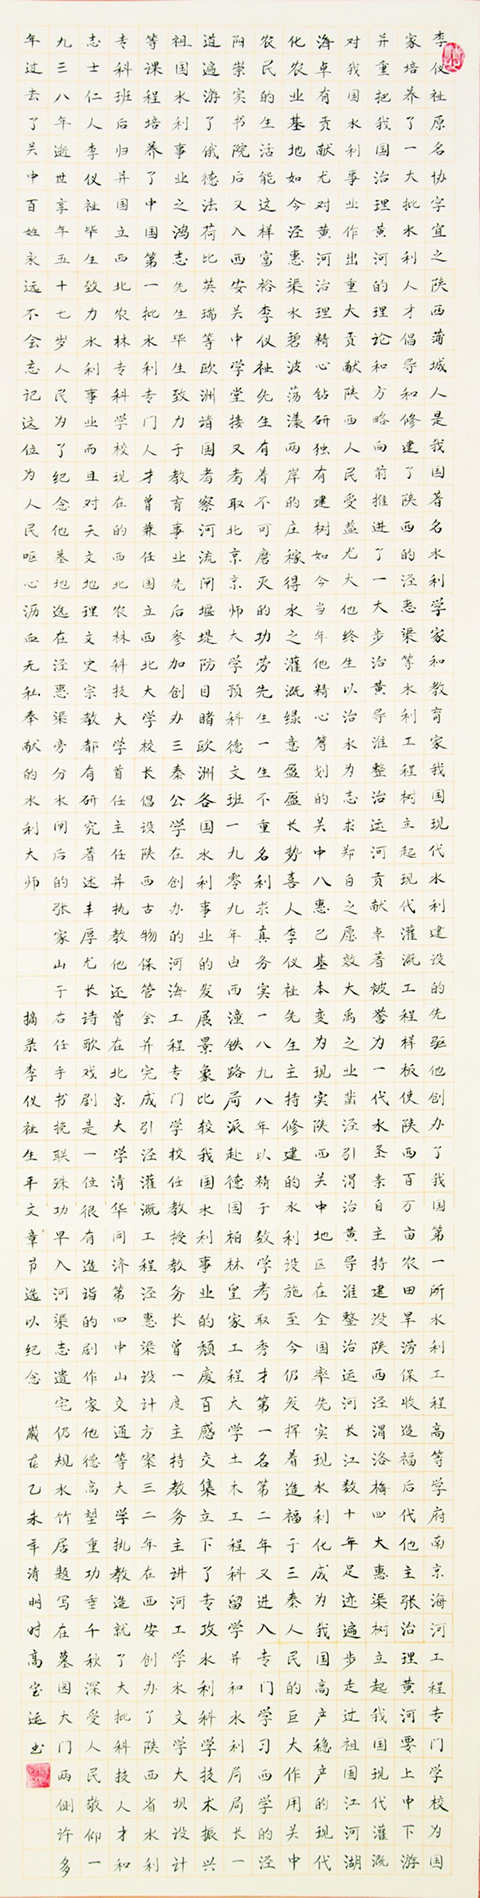 李仪祉原名协字宜之陕西蒲城人是我国著名水利学家和教育家我国现代水利建设的先驱他创办了我国第一所水利工程高等学府南京海河工程专门学校为国
家培养了一大批水利人才倡导和修建了陕西的泾惠渠等水利工程树立起现代灌溉工程样板使陕西百万亩农田旱涝保收造福后代他主张治理黄河要上中下游
并重把我国治理黄河的理论和方略向前推进了一大步治黄导淮整治运河贡献卓著被誉为一代水圣亲自主持建设陕西泾渭洛梅四大惠渠树立起我国现代灌溉
对我国水利事业作出重大贡献陕西人民受益尤大他终生以治水为志求郑白之愿效大禹之业凿泾引渭治黄导淮整治运河长江数十年足迹遍步走过祖国江河湖
海卓有贡献尤对黄河治理精心钻研独有建树如今当年他精心筹划的关中八惠已基本变为现实陕西关中地区在全国率先实现水利化成为我国高产稳产的现代
化农业基地如今泾惠渠水碧波荡漾两岸的庄稼得水之灌溉绿意盈盈长势喜人李仪祉先生主持修建的水利设施至今仍发挥着造福于三秦人民的巨大作用关中
农民的生活能这样富裕李仪祉先生有着不可磨灭的功劳先生一生不重名利求真务实一八九八年以精于数学考取秀才第一名第二年又进入专门学习西学的泾
阳崇实书院后又入西安关中学堂接又考取北京京师大学预科德文班一九零九年由西潼铁路局派赴德国柏林皇家工程大学土木工程科留学并和水利局局长一
道遍游了俄德法荷比英等欧洲诸国考察河流闸堰堤防目睹欧洲各国水利事业的发展景象比较我国水利事业的颓废百感交集立下了专攻水利科学技术振兴
祖国水利事业之鸿志先生毕生致力于教育事业先后参加创办三秦公学在创办的河海工程专门学校任教授教务长曾一度主持教务主讲河工学水文学大坝设计
等课程培养了中国第一批水利专门人才曾兼任国立西北大学校长倡设陕西古物保管会并完成引泾灌溉工程泾惠渠设计方案三二年在西安创办了陕西省水利
专科班后归并国立西北农林专科学校现在的西北农林科技大学首任主任并执教他还曾在北京大学清华同济第四中山交通等大学执教造就了大批科技人才和
志士仁人李仪祉毕生致力水利事业而且对天文地理文史宗教都有研究著述丰厚尤长诗歌戏剧是一位很有造诣的剧作家他德高望重功垂千秋深受人民敬仰一
九三八年逝世享年五十七岁人民为了纪念他墓地选在泾惠渠旁分水闸后的张家山于右任手书挽联殊功早入河渠志遗宅仍规水竹居题写在墓园大门两侧许多
年过去了关中百姓永远不会忘记这位为人民呕心沥血无私奉献的水利大师 摘录李仪祉生平文章节选以纪念 岁在乙未年清明时高宝运书